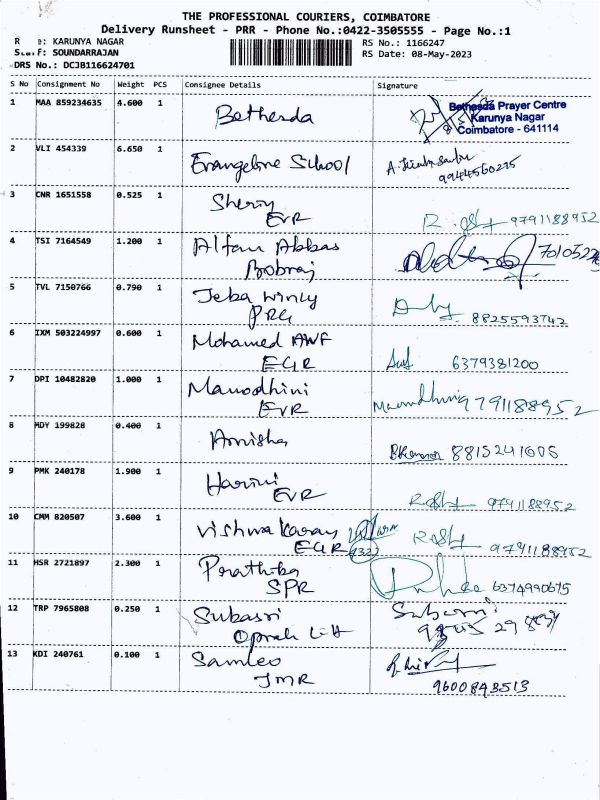 THE PROFESSIONAL COURIERS, COIMBATORE
Delivery Runsheet - PRR - Phone No.:0422-3505555 - Page No.:1
R e: KARUNYA NAGAR
RS No.: 1166247
S f F: SOUNDARRAJAN
RS Date: 08-May-2023
DRS No.: DCJB116624701
S No Consignment No Weight PCS Consignee Details Signature
1 MAA 859234635 4.600 1 Bethesda
Bethesda Prayer Centre
Karunya Nagar
Coimbatore - 641114
2 VLI 454339 6.650 1 Evangeline School
3 CNR 1651558 0.525 1 Sherry
EVR 9791188952
4 TSI 7164549 1.200 1 Abbas
5 TVL 7150766 0.790 1 Jeba Wincy
PRG 8825593742
6 IXM 503224997 0.600 1 Mohamed
EGR 6379381200
7 DPI 10482820 1.000 1 Manodhini
EVR 9791188952
8 MDY 199828 0.400 1 Amisha
8815241606
9 PMK 240178 1.900 1 Harini
EVR 9791188952
10 CMM 820507 3.600 1
EGR 9791188952
11 HSR 2721897 2.300 1 Prathiba
SPR 6374990675
12 TRP 7965808 0.250 1 Subasri
13 KDI 240761 0.100 1 Samleo
JMR 9600843513